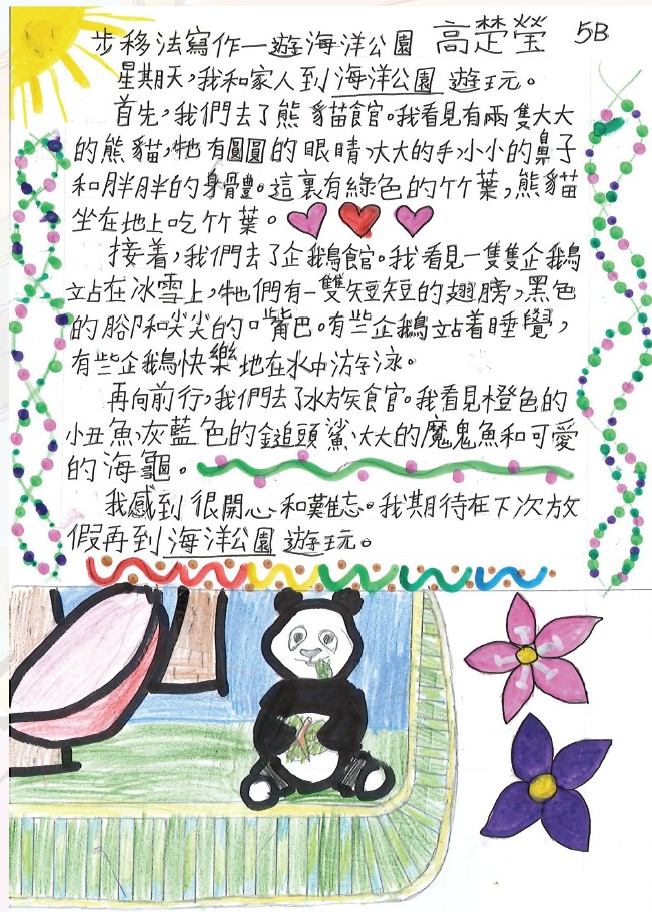 步移法寫作—遊海洋公園 高楚瑩 5B
星期天，我和家人到海洋公園遊玩。
首先，我們去了熊貓館。我看見有兩隻大大
的熊貓，牠有圓圓的眼睛、大大的手、小小的鼻子
和胖胖的身體。這裏有綠色的竹葉，熊貓
坐在地上吃竹葉。
接着，我們去了企鵝館。我看見一隻隻企鵝
站在冰雪上，牠們有一雙短短的翅膀，黑色
的腳和尖尖的嘴巴。有些企鵝站着睡覺，
有些企鵝快樂地在水中游泳。
再向前行，我們去了水族館。我看見橙色的
小丑魚、灰藍色的鎚頭鯊、大大的魔鬼魚和可愛
的海龜。
我感到很開心和難忘。我期待在下次放
假再到海洋公園遊玩。